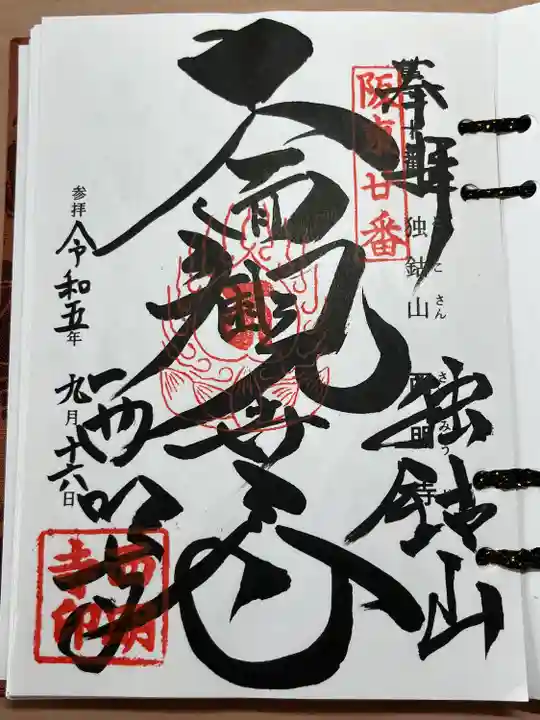 奉拝
阪東廿番
独鈷山
独鈷山
観世音
西明寺
参拝 令和五年 九月十六日
西明寺印